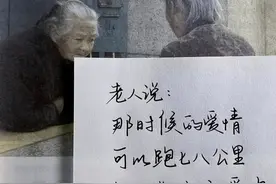 老人说：
那时候的爱情
可以跑七八公里